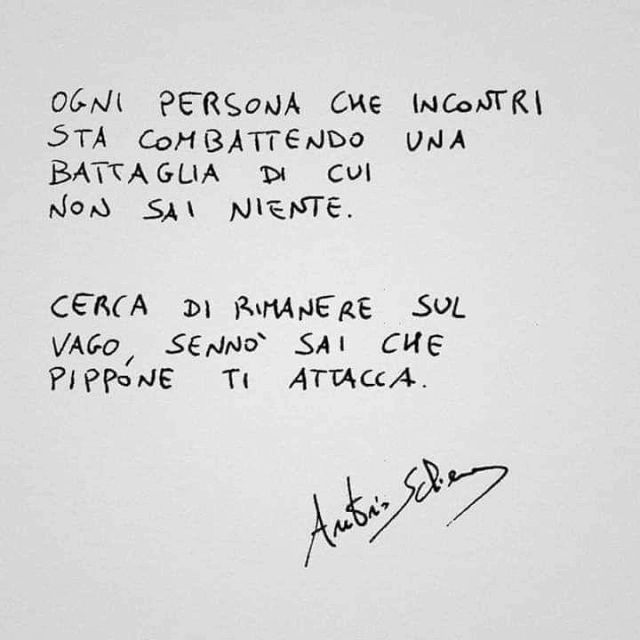 OGNI PERSONA CHE INCONTRI
STA COMBATTENDO UNA
BATTAGLIA DI CUI
NON SAI NIENTE.
CERCA DI RIMANERE SUL
VAGO, SENNÒ SAI CHE
PIPPÓNE TI ATTACCA.